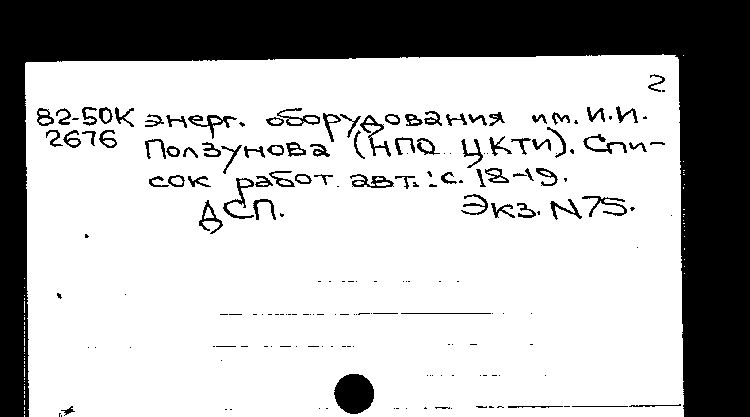 2
82-50К энерг. оборудования им. И.И.
2676 Ползунова (НПО ЦКТИ). Спи-
сок работ авт.: с. 18-19.
ДСП. Экз. N75.